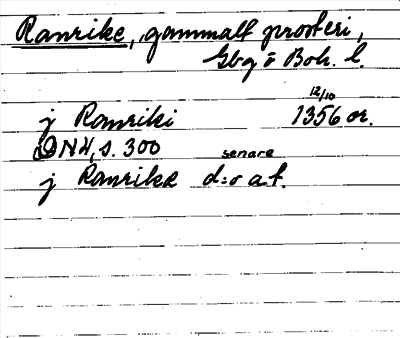 Ranrike, gammalt prosteri,
Gbg o Boh. l.
12/10
j Ranriki 1356 or.
DN 4, s. 300
senare
j Ranrike d:o a.f.